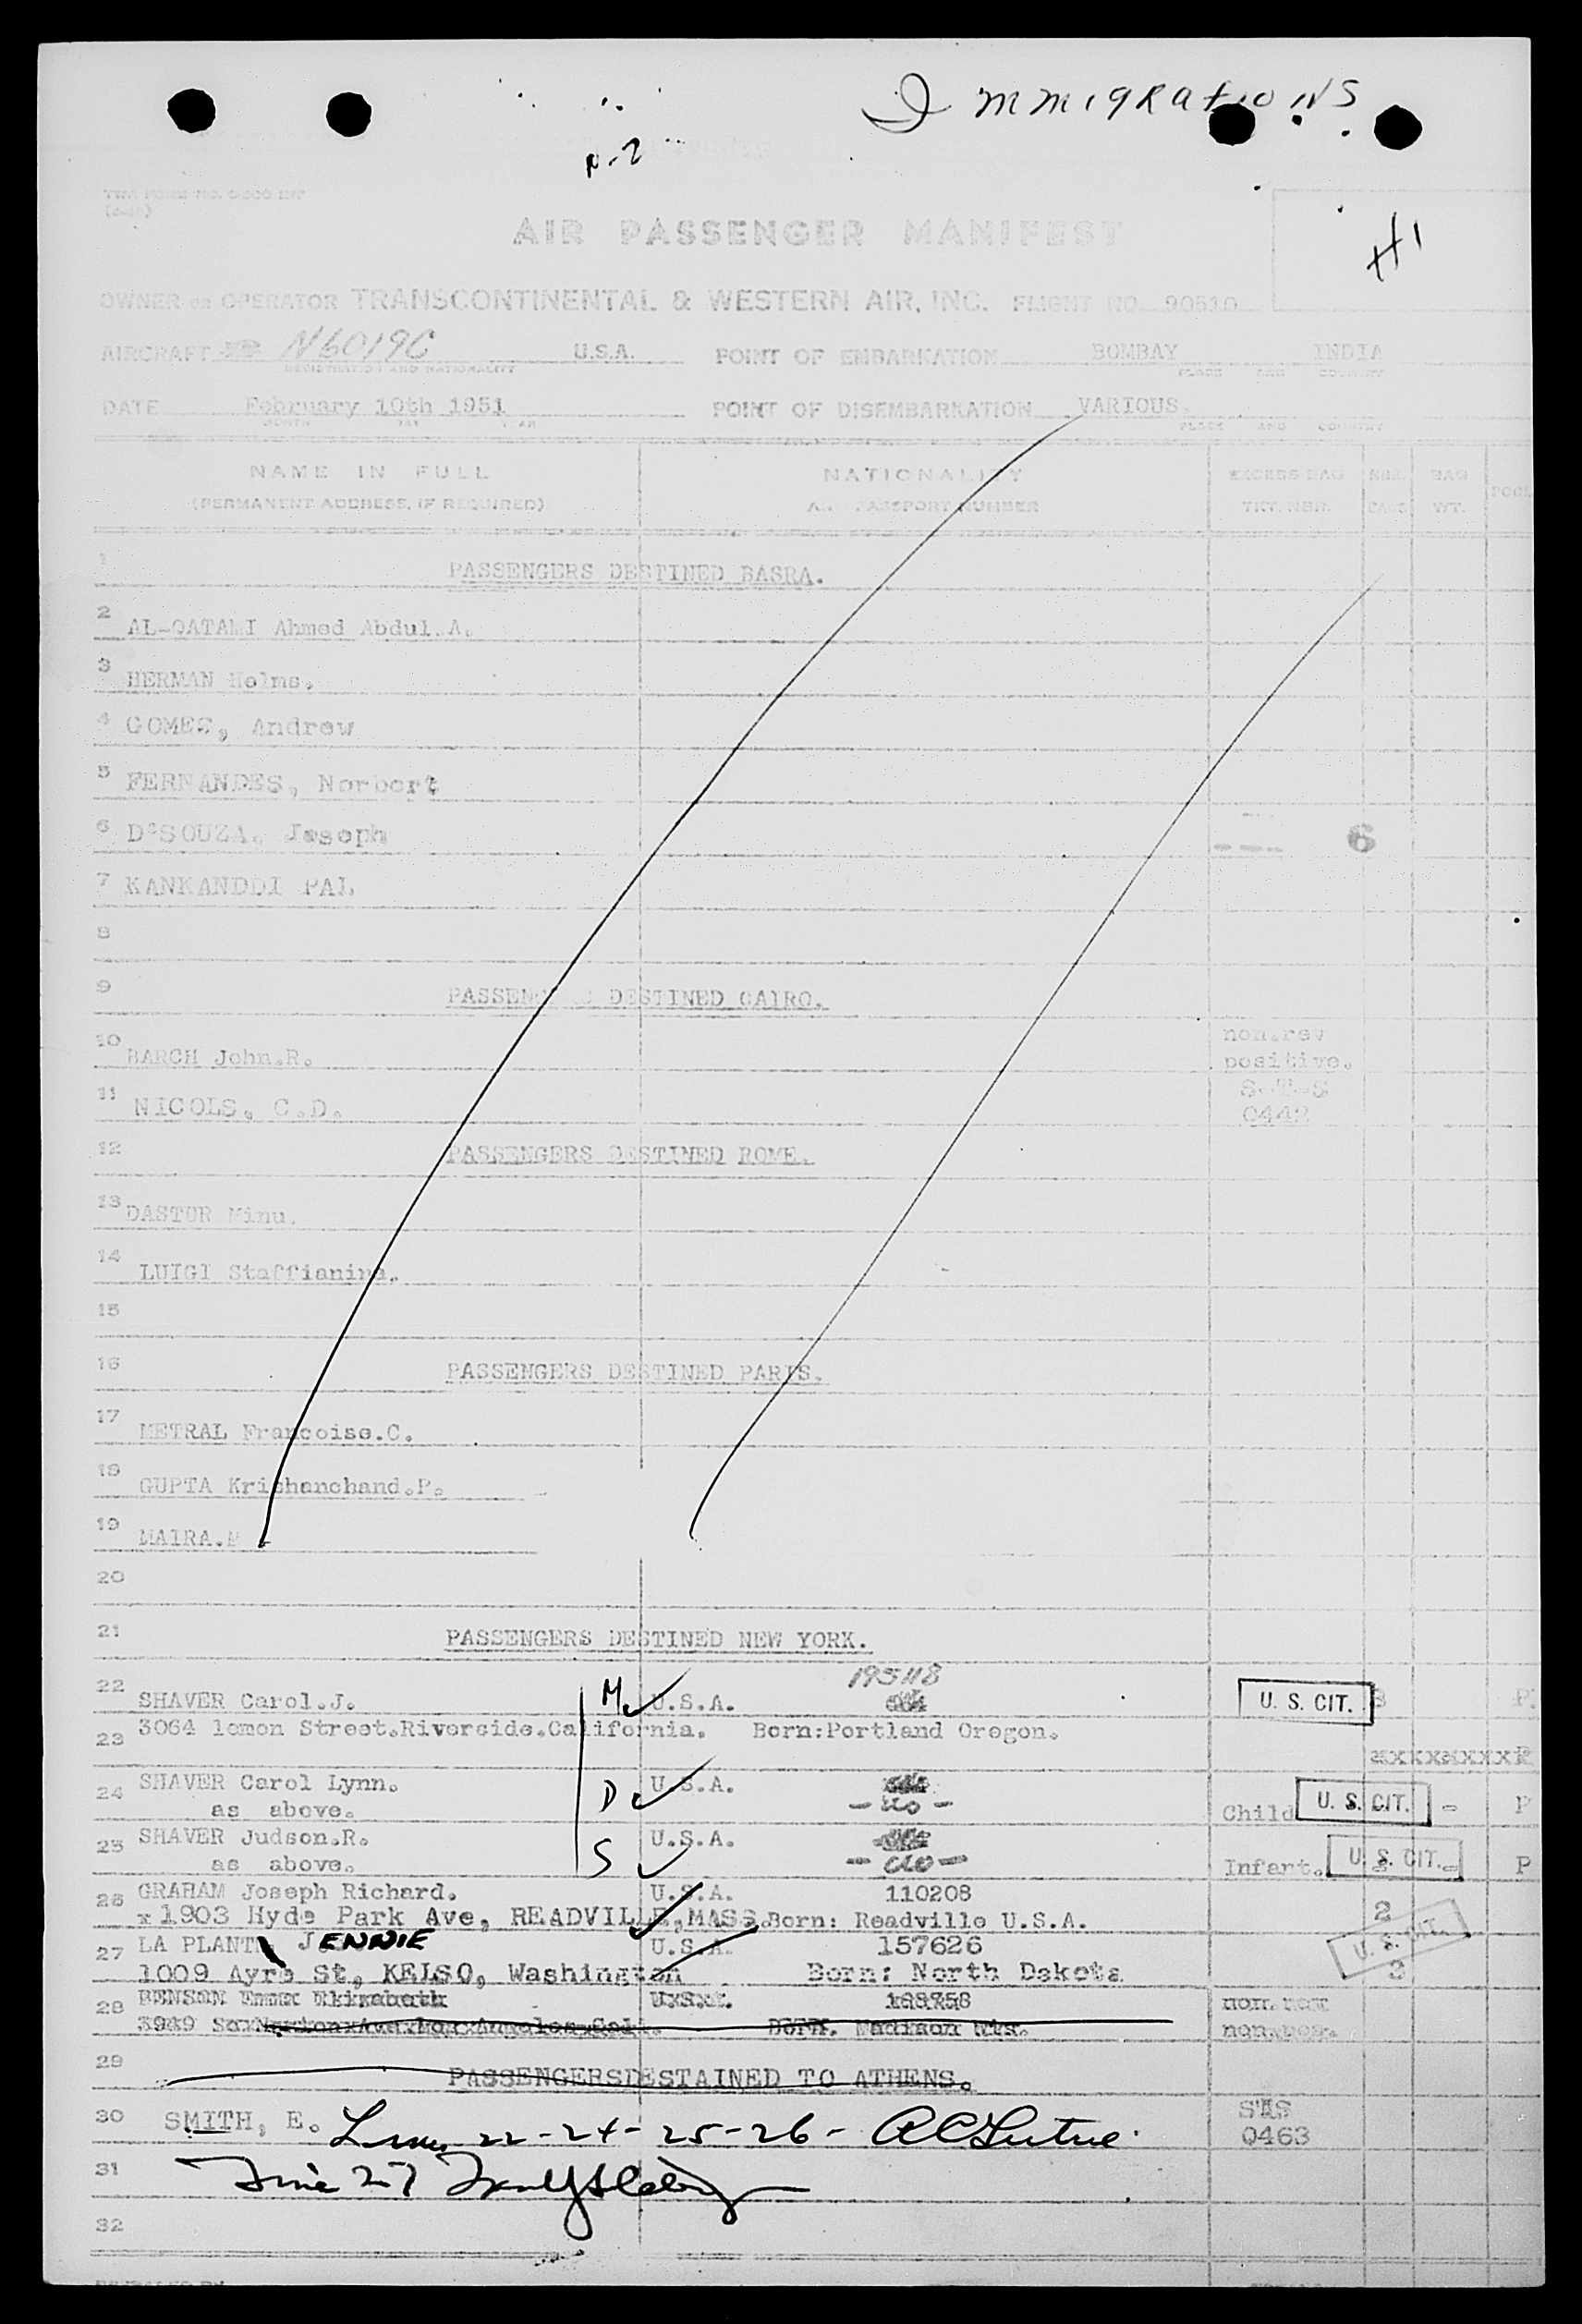 ImmigRatioNS
p-2
#1
AIR PASSENGER MANIFEST
OWNER or OPERATOR TRANSCONTINENTAL & WESTERN AIR, INC. FLIGHT NO. 90510
AIRCRAFT N6019C U.S.A. POINT OF EMBARKATION BOMBAY INDIA
REGISTRATION AND NATIONALITY PLACE AND COUNTRY
DATE February 10th 1951 POINT OF DISEMBARKATION VARIOUS.
MONTH DAY YEAR PLACE AND COUNTRY
NAME IN FULL NATIONALITY EXCESS BAG NBR. BAG
(PERMANENT ADDRESS, IF REQUIRED) PASSPORT NUMBER TKT. NBR. BAGS WT. POOL
1 PASSENGERS DESTINED BASRA.
2 AL-QATAMI Ahmed Abdul.A.
3 HERMAN Holms.
4 GOMES, Andrew
5 FERNANDES, Norbert
6 D'SOUZA. Joseph 6
7 KANKANDDI PAL
8
9 PASSENGERS DESTINED CAIRO.
10 BARCH John.R. non.rev
positive.
11 NICOLS, C.D. 0442
12 PASSENGERS DESTINED ROME.
13 DASTUR Minu.
14 LUIGI Staffianina.
15
16 PASSENGERS DESTINED PARIS.
17 METRAL Francoise.C.
18 GUPTA Krichanchand.P.
19 MAIRA.
20
21 PASSENGERS DESTINED NEW YORK.
195118
22 SHAVER Carol.J. M U.S.A. U. S. CIT. 3 P.
23 3064 lemon Street.Riverside.California. Born:Portland Oregon.
24 SHAVER Carol Lynn. D U.S.A.
as above. - do - Child U. S. CIT. - P
25 SHAVER Judson.R. S U.S.A.
as above. - do - Infant. U. S. CIT. - P
26 GRAHAM Joseph Richard. U.S.A. 110208
x 1903 Hyde Park Ave, READVILLE, MASS. Born: Readville U.S.A. 2
27 LA PLANT, JENNIE U.S.A. 157626 U. S. CIT.
1009 Ayre St, KELSO, Washington Born: North Dakota 3
28 BENSON Emma Elizabeth U.S.A. non.
3949 So. Ave. Los Angeles Cal. Born. Madison Wis. non.
29 PASSENGERSDESTAINED TO ATHENS.
30 SMITH, E. STS
Lines 22-24-25-26- 0463
31 Line 27
32